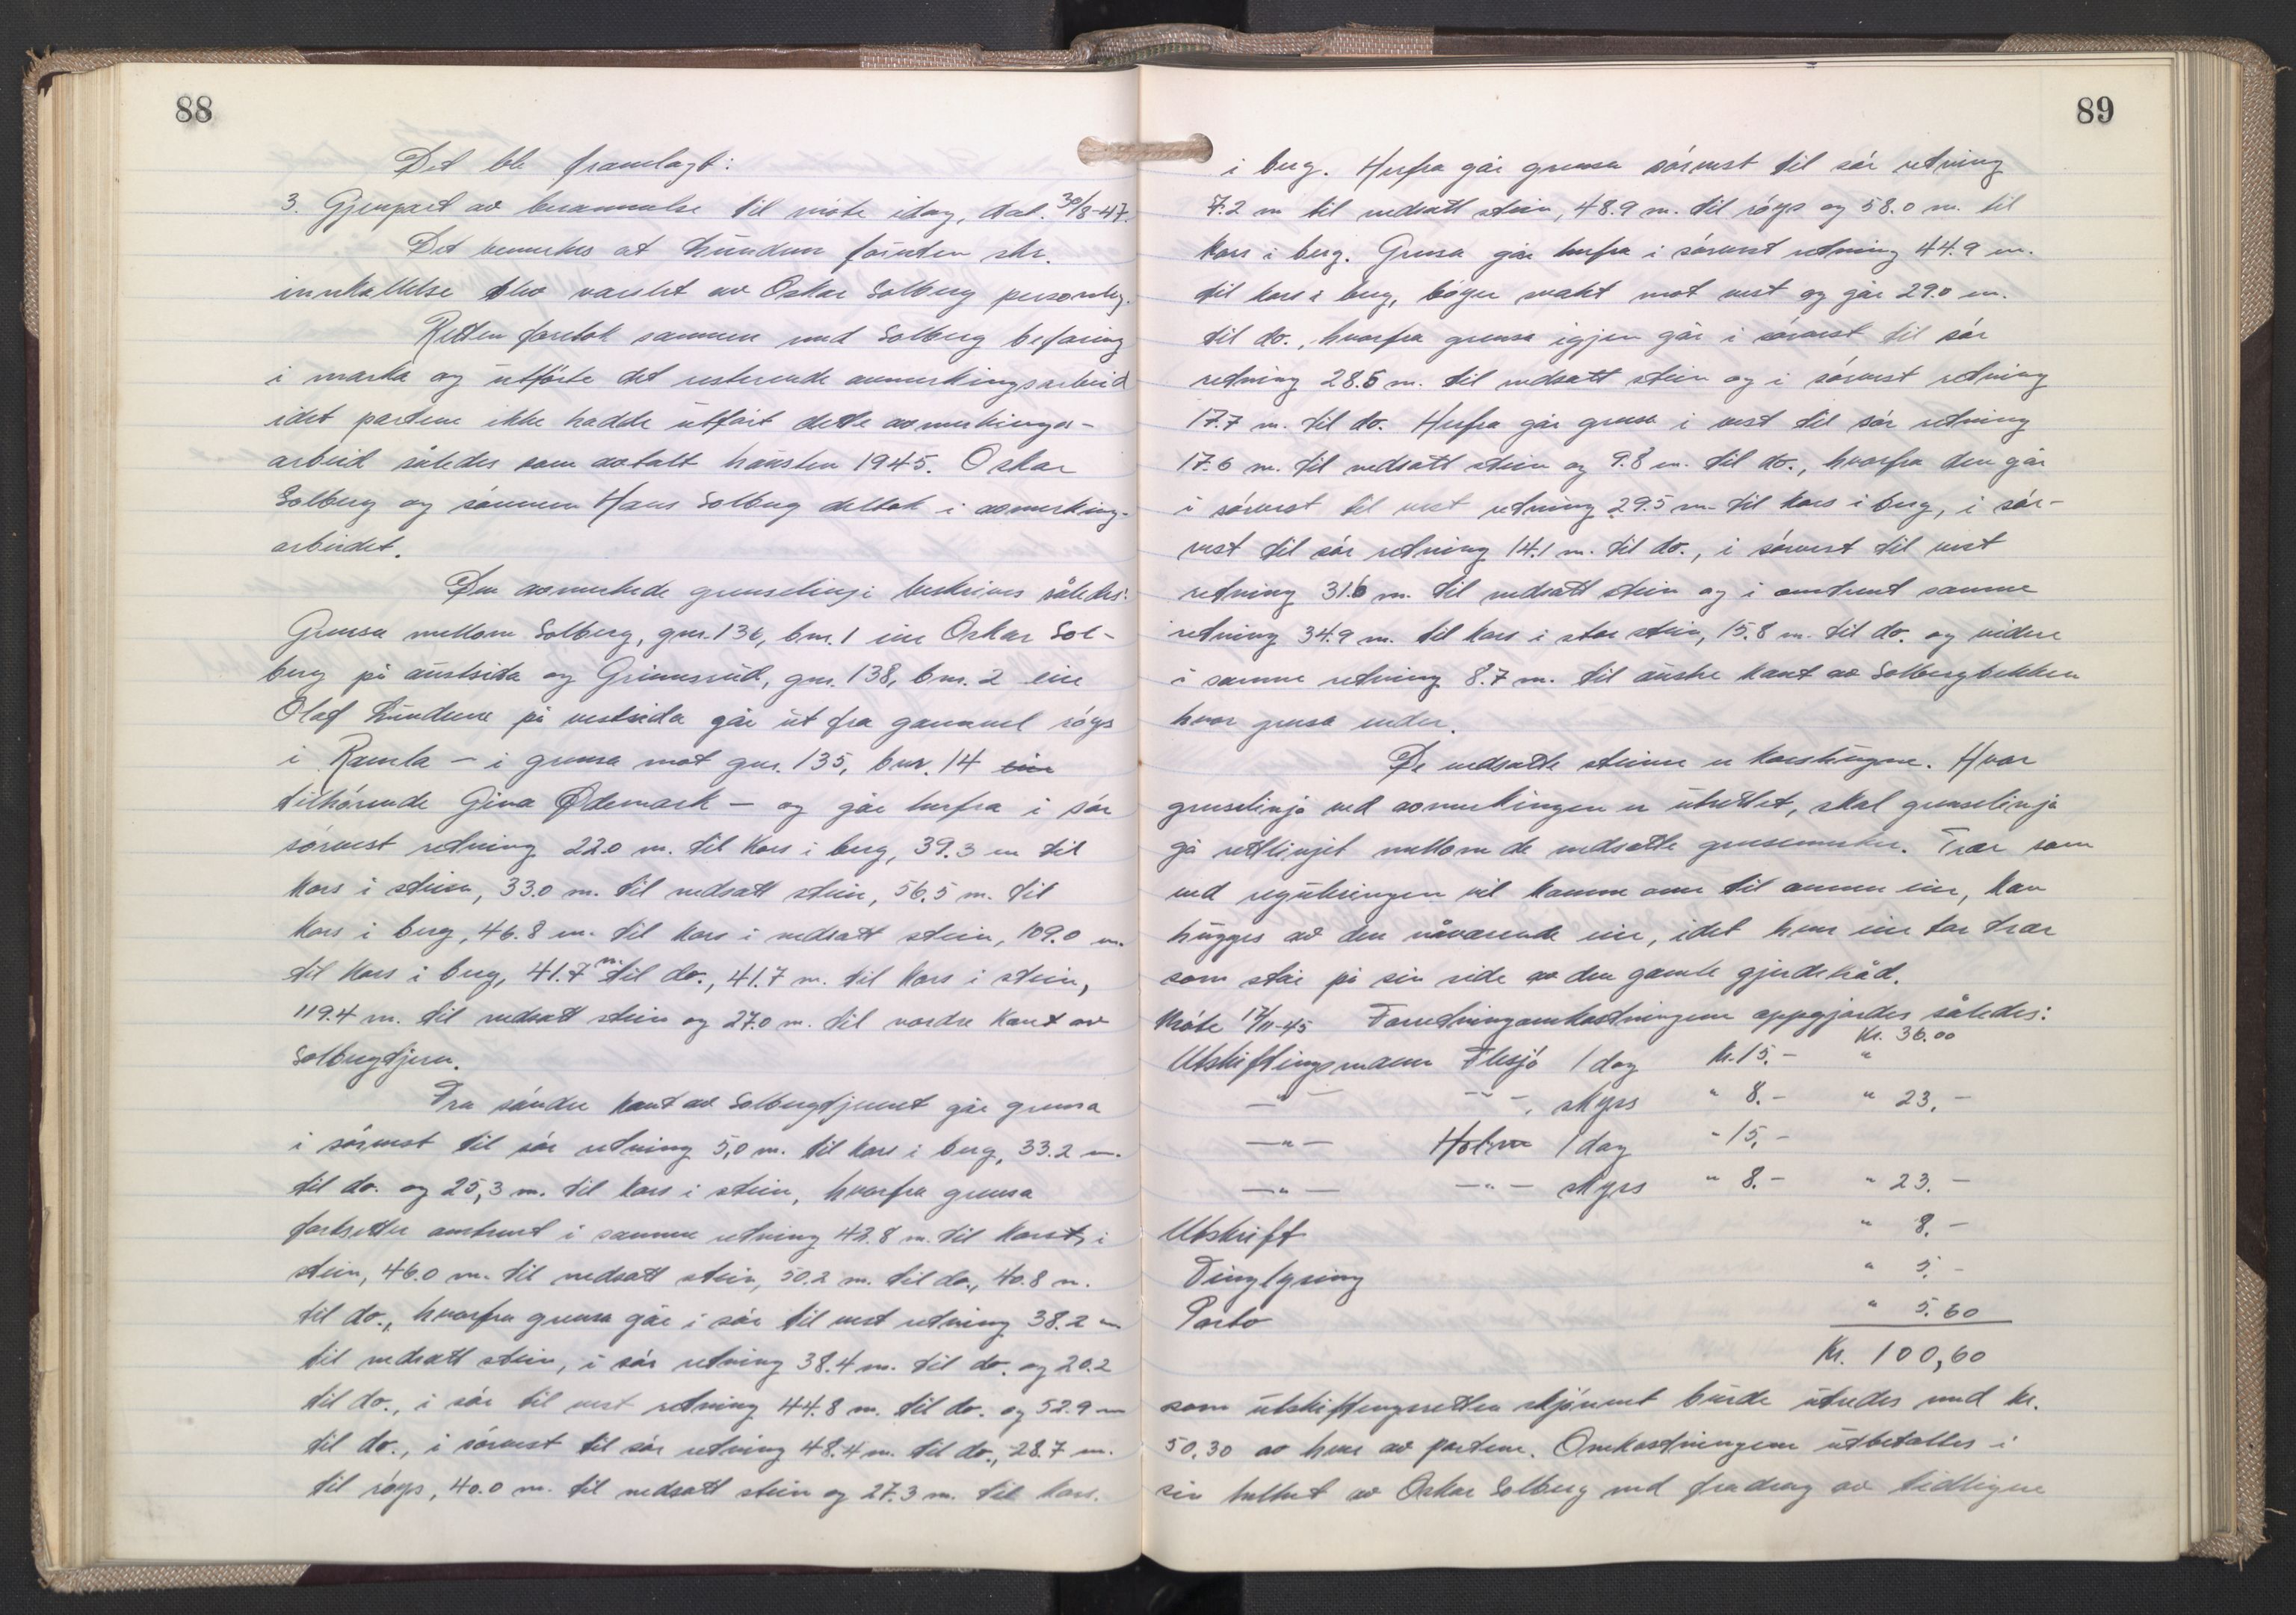 88
Det ble framlagt:
3. Gjenpart av berammelse til møte idag, dat. 30/8-47.
Det bemerkes at Lundene foruten skr.
innkallelse blev varslet av Oskar Solberg personlig.
Retten foretok sammen med Solberg befaring
i marka og utførte det resterende avmerkingsarbeid
idet partene ikke hadde utført dette avmerkings-
arbeid således som avtalt høsten 1945. Oskar
Solberg og sønnen Hans Solberg deltok i avmerking-
arbeidet.
Den avmerkede grenselinje beskrives således:
Grensa mellom Solberg, gnr. 136, bnr. 1 eier Oskar Sol-
berg på austsida og Grimsrud, gnr. 138, bnr. 2 eier
Olaf Lundene på vestsida går ut fra gammel røys
i Ramla – i grensa mot gnr. 135, bnr. 14 eier
tilhørende Gina Ødemark – og går herfra i sør
sørvest retning 22.0 m. til kors i berg, 39.3 m til
kors i stein, 33.0 m. til nedsatt stein, 56.5 m. til
kors i berg, 46.8 m. til kors i nedsatt stein, 109.0 m.
til kors i berg, 41.7 m. til do., 41.7 m. til kors i stein,
119.4 m. til nedsatt stein og 27.0 m. til nordre kant av
Solbergtjern.
Fra søndre kant av Solbergtjernet går grensa
i sørvest til sør retning 5,0 m. til kors i berg, 33.2 m.
til do. og 25,3 m. til kors i stein, hvorfra grensa
fortsetter omtrent i samme retning 42.8 m. til kors i
stein, 46.0 m. til nedsatt stein, 50.2 m. til do., 40.8 m.
til do., hvorfra grensa går i sør til vest retning 38.2 m
til nedsatt stein, i sør retning 38.4 m. til do. og 20.2
til do., i sør til vest retning 44.8 m. til do. og 52.9 m
til do., i sørvest til sør retning 48.4 m. til do., 28.7 m.
til røys, 40.0 m. til nedsatt stein og 27.3 m. til kors.
89
i berg. Herfra går grensa sørvest til sør retning
7.2 m til nedsatt stein, 48.9 m. til røys og 58.0 m. til
kors i berg. Grensa går herfra i sørvest retning 44.9 m.
til kors i berg, bøyer svakt mot vest og går 29.0 m.
til do., hvorfra grensa igjen går i sørvest til sør
retning 28.5 m. til nedsatt stein og i sørvest retning
17.7 m. til do. Herfra går grensa i vest til sør retning
17.6 m. til nedsatt stein og 9.8 m. til do., hvorfra den går
i sørvest til vest retning 29.5 m. til kors i berg, i sør-
vest til sør retning 14.1 m. til do., i sørvest til vest
retning 31.6 m. til nedsatt stein og i omtrent samme
retning 34.9 m. til kors i stor stein, 15.8 m. til do. og videre
i samme retning 8.7 m. til austre kant av Solbergbekken
hvor grensa ender.
De nedsatte steiner er korshugne. Hvor
grenselinja ved avmerkingen er utrettet, skal grenselinja
gå rettlinjet mellom de nedsatte grensemerker. Trær som
ved reguleringen vil komme over til annen eier, kan
hugges av den nåværende eier, idet hver eier tar trær
som står på sin side av den gamle gjerdetråd.
Møte 17/11-45 Forretningsomkostningene oppgjordes således:
Kr. 36.00
Utskiftingsmann Flesjø 1 dag kr. 15.- "
—"— —"—, skyss " 8.- " 23.-
—"— Holm 1 dag " 15,-
—"— —"— skyss " 8.- " 23.-
Utskrift " 8.-
Tinglysing " 5.-
Porto " 5.60
Kr. 100,60
som utskiftingsretten skjønnet burde utredes med kr.
50.30 av hver av partene. Omkostningene utbetaltes i
sin helhet av Oskar Solberg med fradrag av tidligere